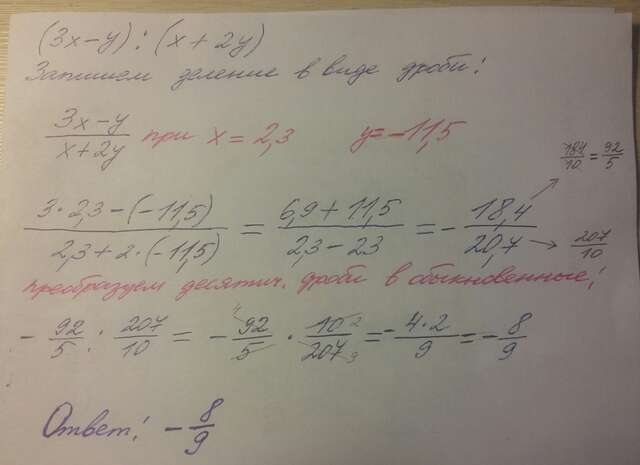 (3x-y) : (x+2y)
Запишем деление в виде дроби!
3x-y / x+2y при x = 2,3 y=-11,5
184/10 = 92/5
3·2,3-(-11,5) / 2,3+2·(-11,5) = 6,9+11,5 / 2,3-23 = - 18,4 / 20,7 → 207/10
преобразуем десятич. дроби в обыкновенные!
- 92/5 : 207/10 = - 92/5 · 10/207 = - 4·2/9 = - 8/9
Ответ! - 8/9